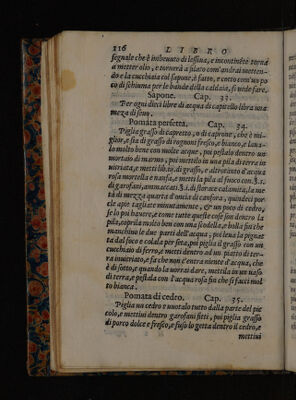 116 LIBRO
segnale che è imbeuuto di lessiua, e incontinēte torna
a metter olio, e tornerà a filato com'andrai metten-
do e la cucchiaia col sapone, è fatto, e cotto com'un po
co di schiuma per le bande della caldaia, si uede fare.
Sapone. Cap. 33.
Per ogni dieci libre di acqua di capitello libra una
meza di seuo.
Pomata perfetta. Cap. 34.
Piglia grasso di capretto, o di caprone, che è mi-
glior, e sia di grasso di rognoni fresco, e bianco, e laua-
lo molto bene con molte acque, poi pestalo dentro un
mortaio di marmo, poi mettelo in una pila di terra in
uitriata, e metti lib. di grasso, e altrotanto d'acqua
rosa mortella e nanfa, e metti la pila al fuoco con
di garofani, ammaccati di storace calamita, la me
tà di mezza quarta d'oncia di canfora, quindeci pome
le apie tagliate minutamente, & un poco di cedro,
se lo poi hauere, e come tutte queste cose son dentro la
pila, coprila molto ben con una scodella, e bolla fin che
manchino le due parti dell'acqua, poi leua la pignat
ta dal foco e colala per seta, poi piglia il grasso con un
cucchiaio di ferro, e metti dentro ad un piatto di ter-
ra inuitriato, e fa che non c'entra niente d'acqua, che
è di sotto, e quando la uorrai dare, mettila in un uaso
di terra, e pestala con l'acqua rosa fin che si facci mol
to bianca.
Pomata di cedro. Cap. 35.
Piglia un cedro e uuotalo tutto dalla parte del pic
colo, e mettini dentro garofani fitti, poi piglia grasso
di porco dolce e fresco, e fuso lo getta dentro il cedro, e
mettini